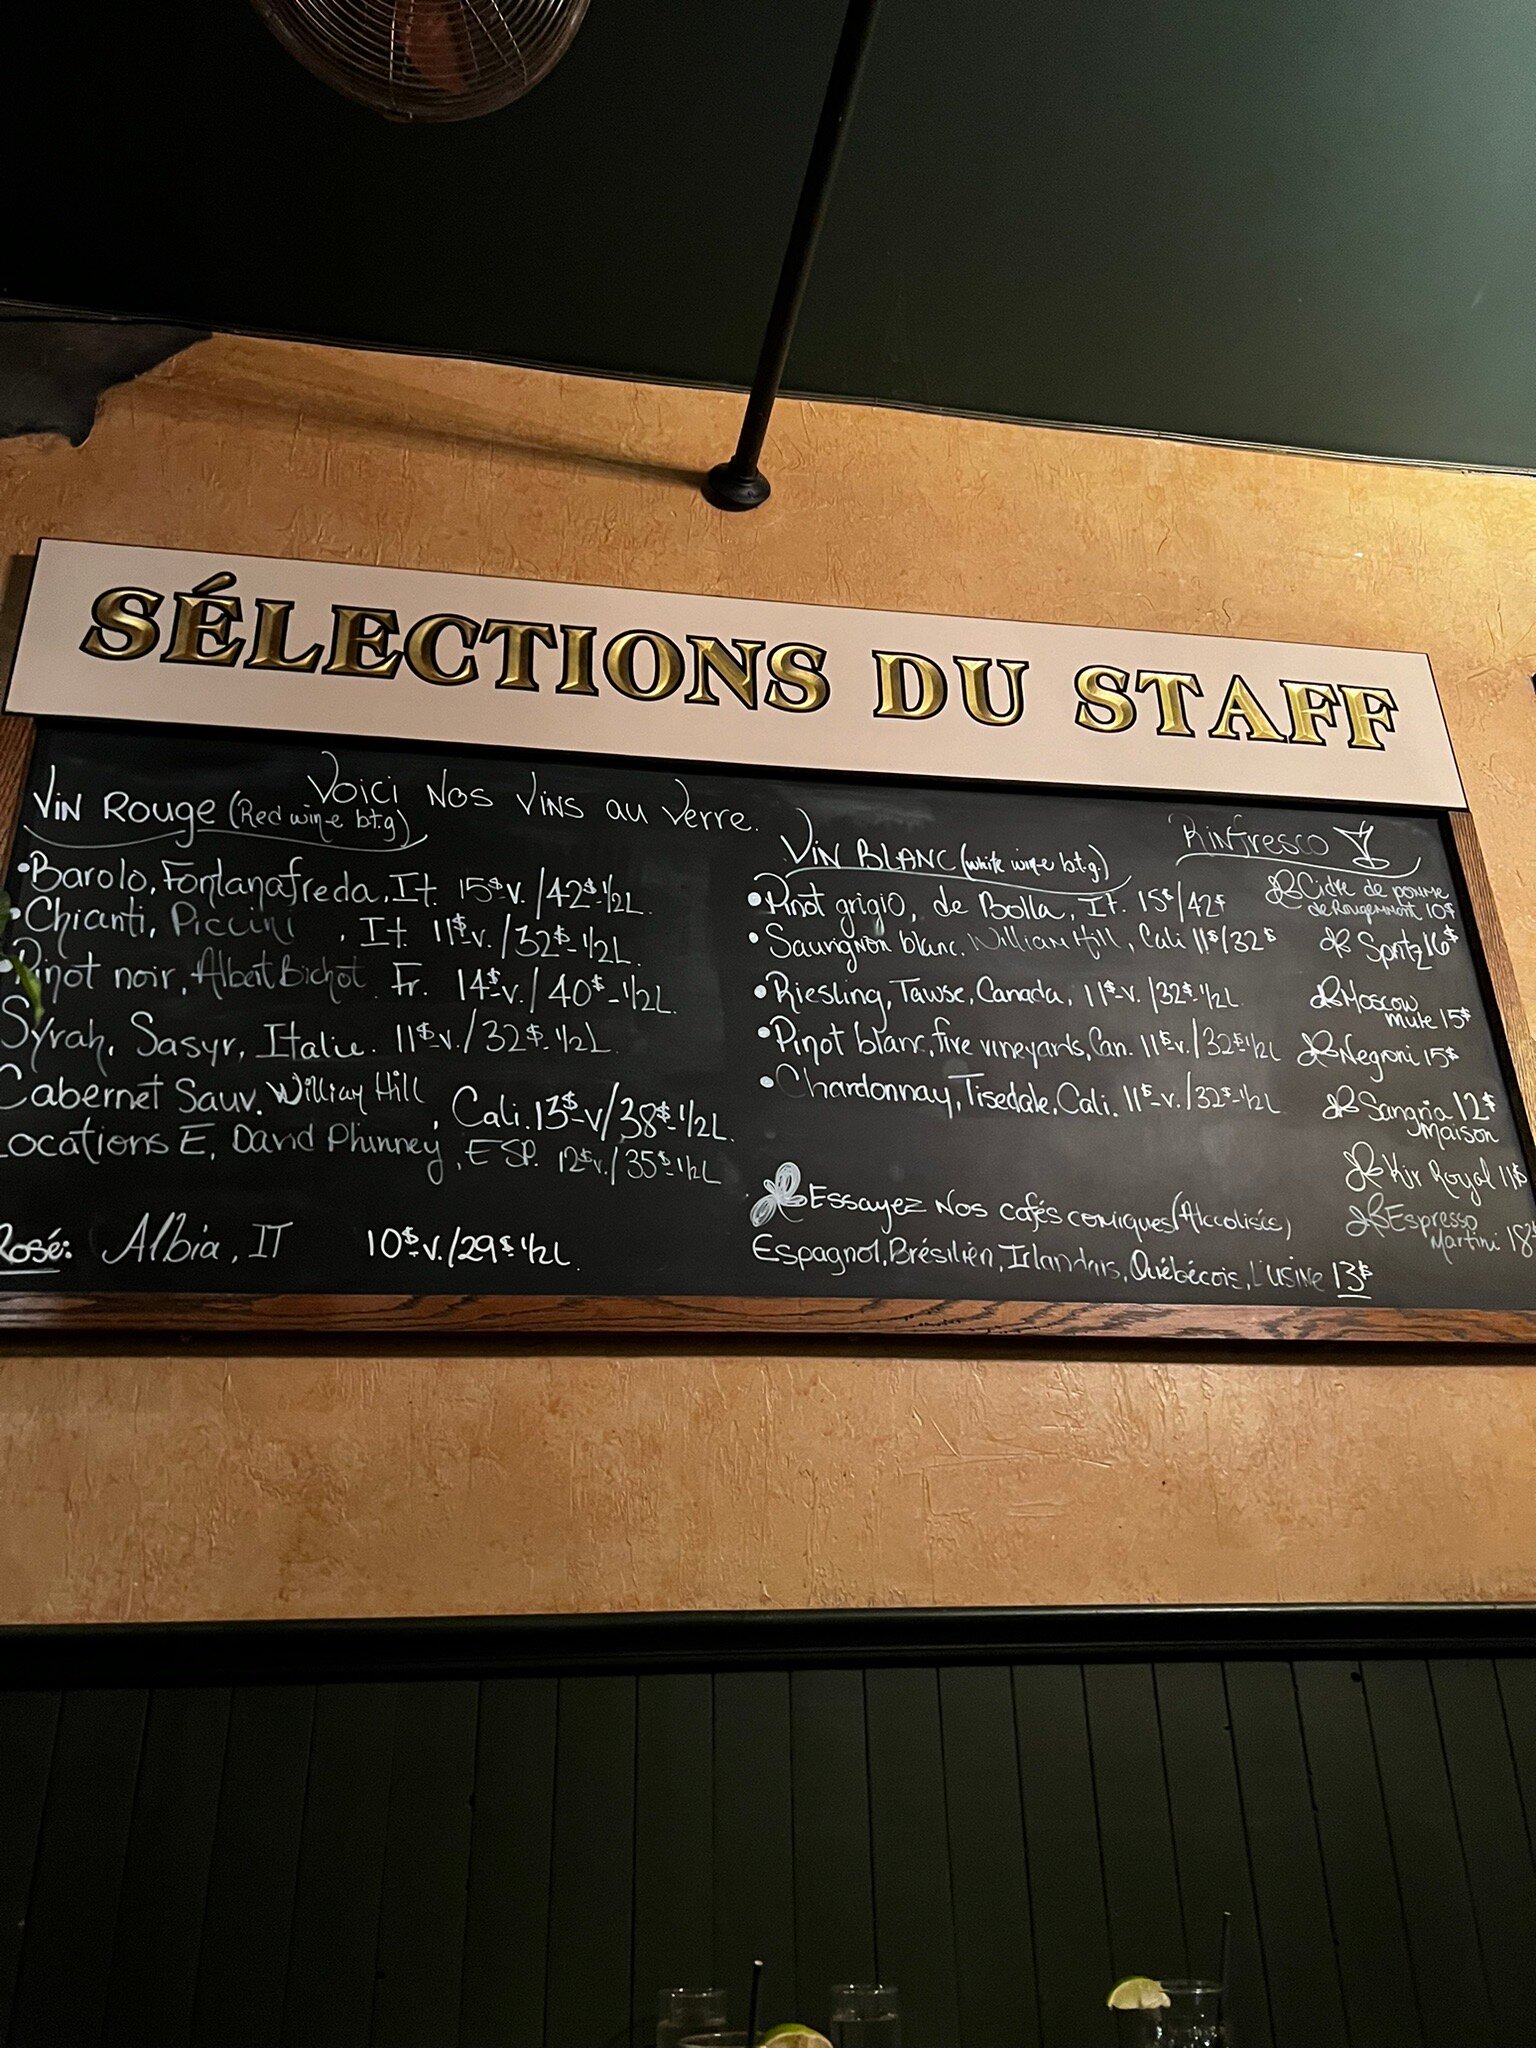 SÉLECTIONS DU STAFF
Voici Nos Vins au Verre.
Vin Rouge (Red wine b.t.g)
• Barolo, Fontanafreda, It. 15$-v. / 42$-1/2L.
• Chianti, Piccini, It 11$-v. / 32$-1/2L
• Pinot noir, Albert Bichot Fr. 14$-v. / 40$-1/2L.
Syrah, Sasyr, Italie. 11$-v. / 32$-1/2L
Cabernet Sauv. William Hill, Cali. 13$-v / 38$-1/2L.
Locations E, David Phinney, ESP. 12$v. / 35$-1/2L
Rosé: Albia, IT 10$-v. / 29$-1/2L.
Vin Blanc (white wine b.t.g.)
• Pinot grigio, de Bolla, It. 15$/42$
• Sauvignon blanc. William Hill, Cali 11$/32$
• Riesling, Tawse, Canada, 11$-v. / 32$-1/2L
• Pinot blanc, five vineyards, Can. 11$-v. / 32$-1/2L
• Chardonnay, Tisedale, Cali. 11$-v. / 32$-1/2L
Essayez Nos cafés comiques (Alcoolisés)
Espagnol, Brésilien, Irlandais, Québécois, L'usine 13$
Rinfresco
Cidre de pomme
de Rougemont 10$
Spritz 16$
Moscow
mule 15$
Negroni 15$
Sangria 12$
Maison
Kir Royal 11$
Espresso
Martini 18$